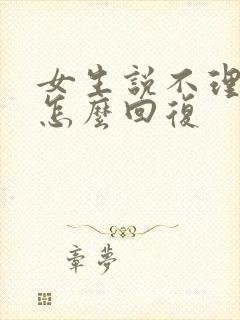 女生説不理
怎麼回復
章夢